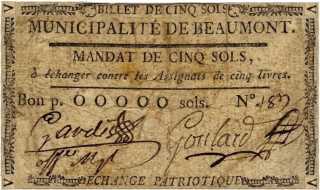 BILLET DE CINQ SOLS
MUNICIPALITÉ DE BEAUMONT.
MANDAT DE CINQ SOLS,
à échanger contre les Assignats de cinq livres.
Bon p. 00000 sols. N.º 187
Goulard
ECHANGE PATRIOTIQUE